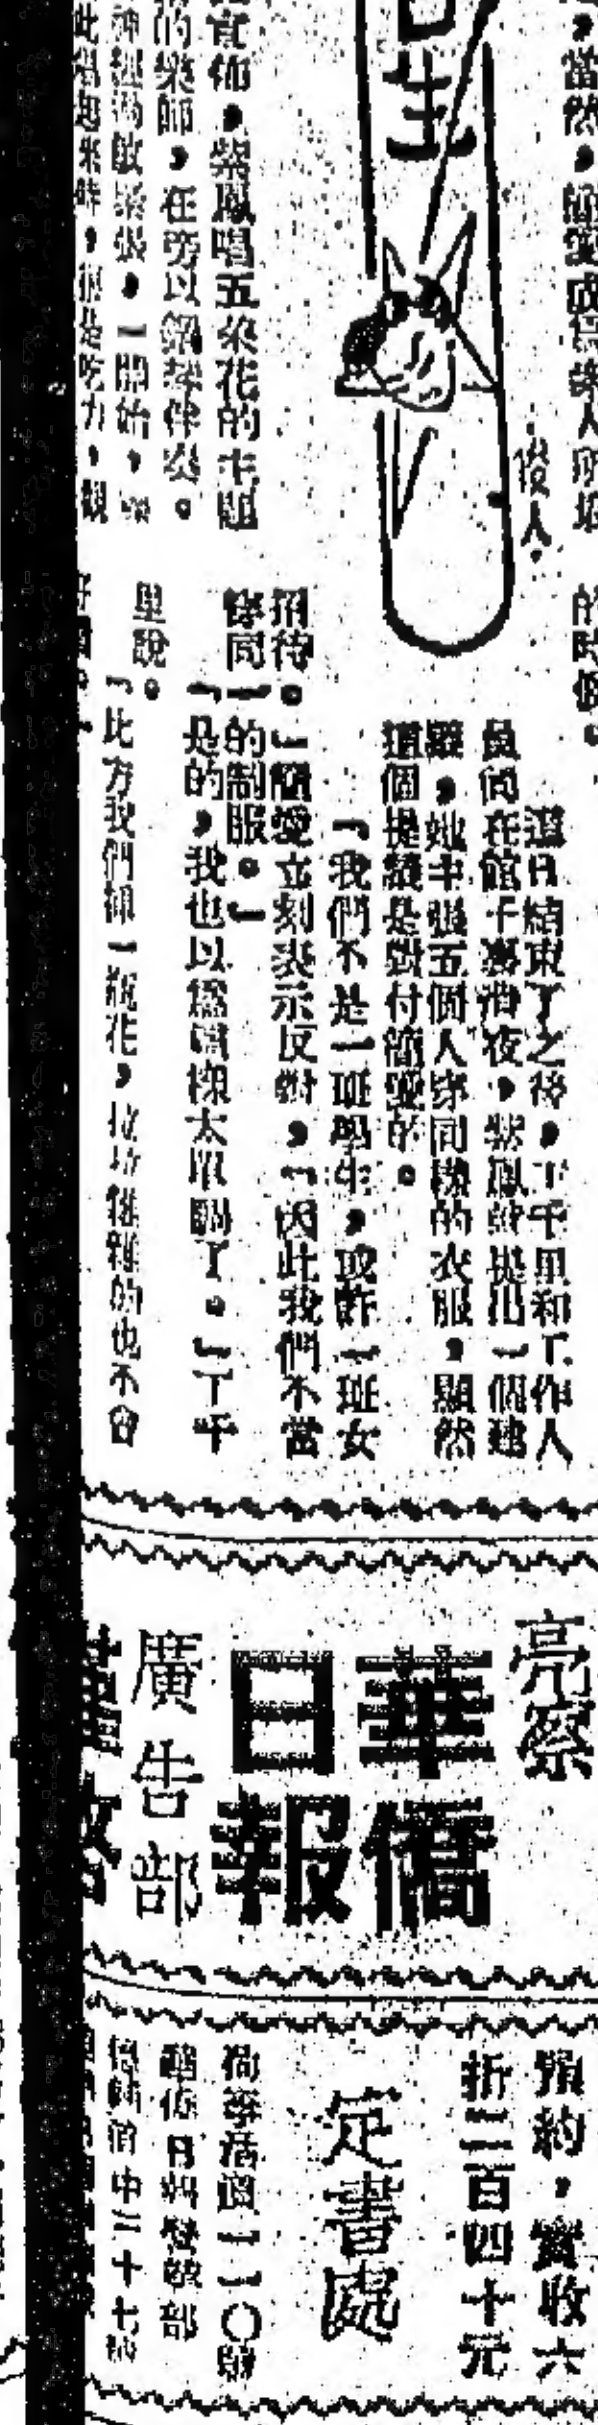 當然，
的時候。
俊人
生
宣佈，紫鳳唱五朵花的主題
的樂師，在旁以鋼琴伴奏。
神經過敏緊張。一開始，
唱起來時，很是吃力，觀
這日結束了之後，丁千里和工作人
員尚在館子裏消夜，紫鳳就提出一個建
議，她主張五個人穿同樣的衣服，顯然
這個提議是對付簡愛的。
「我們不是一班學生，或許一班女
招待。」簡愛立刻表示反對，「因此我們不當
穿同一的制服。」
「是的，我也以為這樣太單調了。」丁千
里說。
「比方我們插一瓶花，拉拉雜雜的也不會
亮察
華僑
日報
廣告部
謹啓
預約，實收六
折二百四十元
定書處
荷李活道一一〇號
華僑日報發報部
德輔道中三十七號